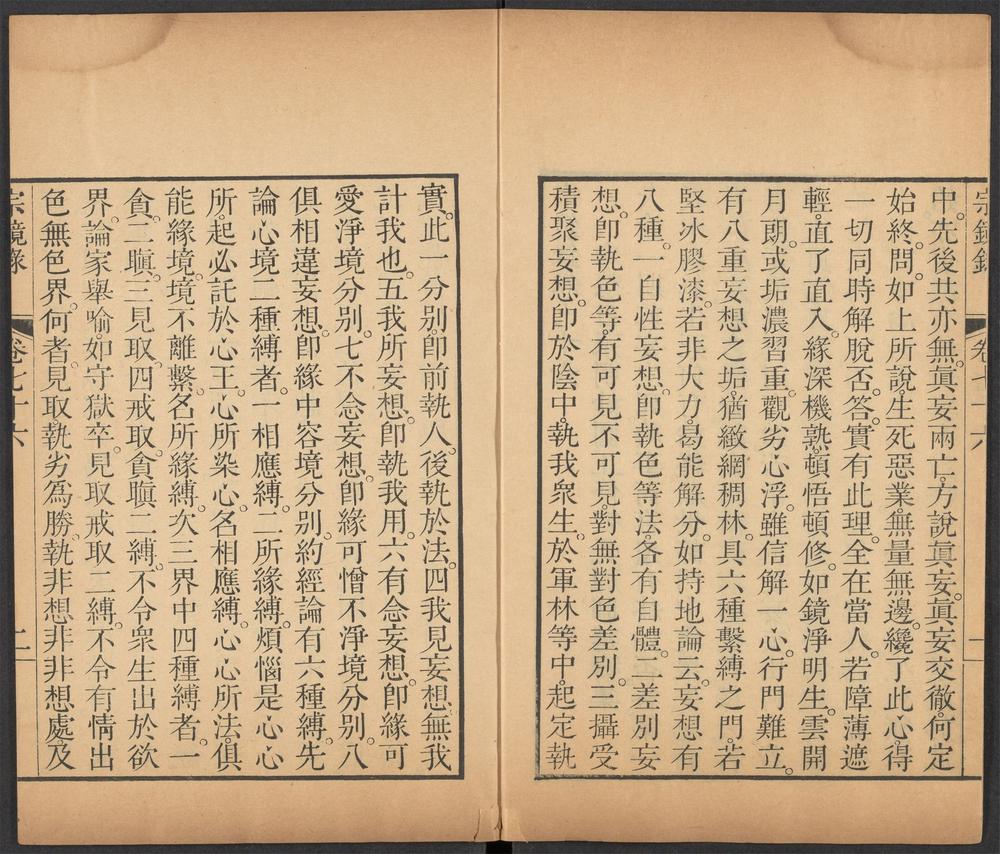 宗鏡錄 卷七十六 二
中。先後共亦無。眞妄兩亡。方說眞妄。眞妄交徹。何定
始終。問。如上所說。生死惡業。無量無邊。纔了此心。得
一切同時解脫否。答。實有此理。全在當人。若障薄遮
輕。直了直入。緣深機熟。頓悟頓修。如鏡淨明生。雲開
月朗。或垢濃習重。觀劣心浮。雖信解一心。行門難立。
有八重妄想之垢。猶緻網稠林。具六種繫縛之門。若
堅冰膠漆。若非大力。曷能解分。如持地論云。妄想有
八種。一自性妄想。卽執色等法。各有自體。二差別妄
想。卽執色等。有可見不可見。對無對色差別。三攝受
積聚妄想。卽於陰中。執我衆生。於軍林等中。起定執
實。此一分別。卽前執人。後執於法。四我見妄想。無我
計我也。五我所妄想。卽執我用。六有念妄想。卽緣可
愛淨境分別。七不念妄想。卽緣可憎不淨境分別。八
俱相違妄想。卽緣中容境分別。約經論有六種縛。先
論心境二種縛者。一相應縛。二所緣縛。煩惱是心心
所起。必託於心王。心所染心。名相應縛。心心所法。俱
能緣境。境不離繫。名所緣縛。次三界中四種縛者。一
貪。二瞋。三見取。四戒取。貪瞋二縛。不令衆生出於欲
界。論家舉喻。如守獄卒。見取戒取二縛。不令有情出
色無色界。何者。見取執劣爲勝。執非想非非想處。及
宗鏡錄 卷七十六 二